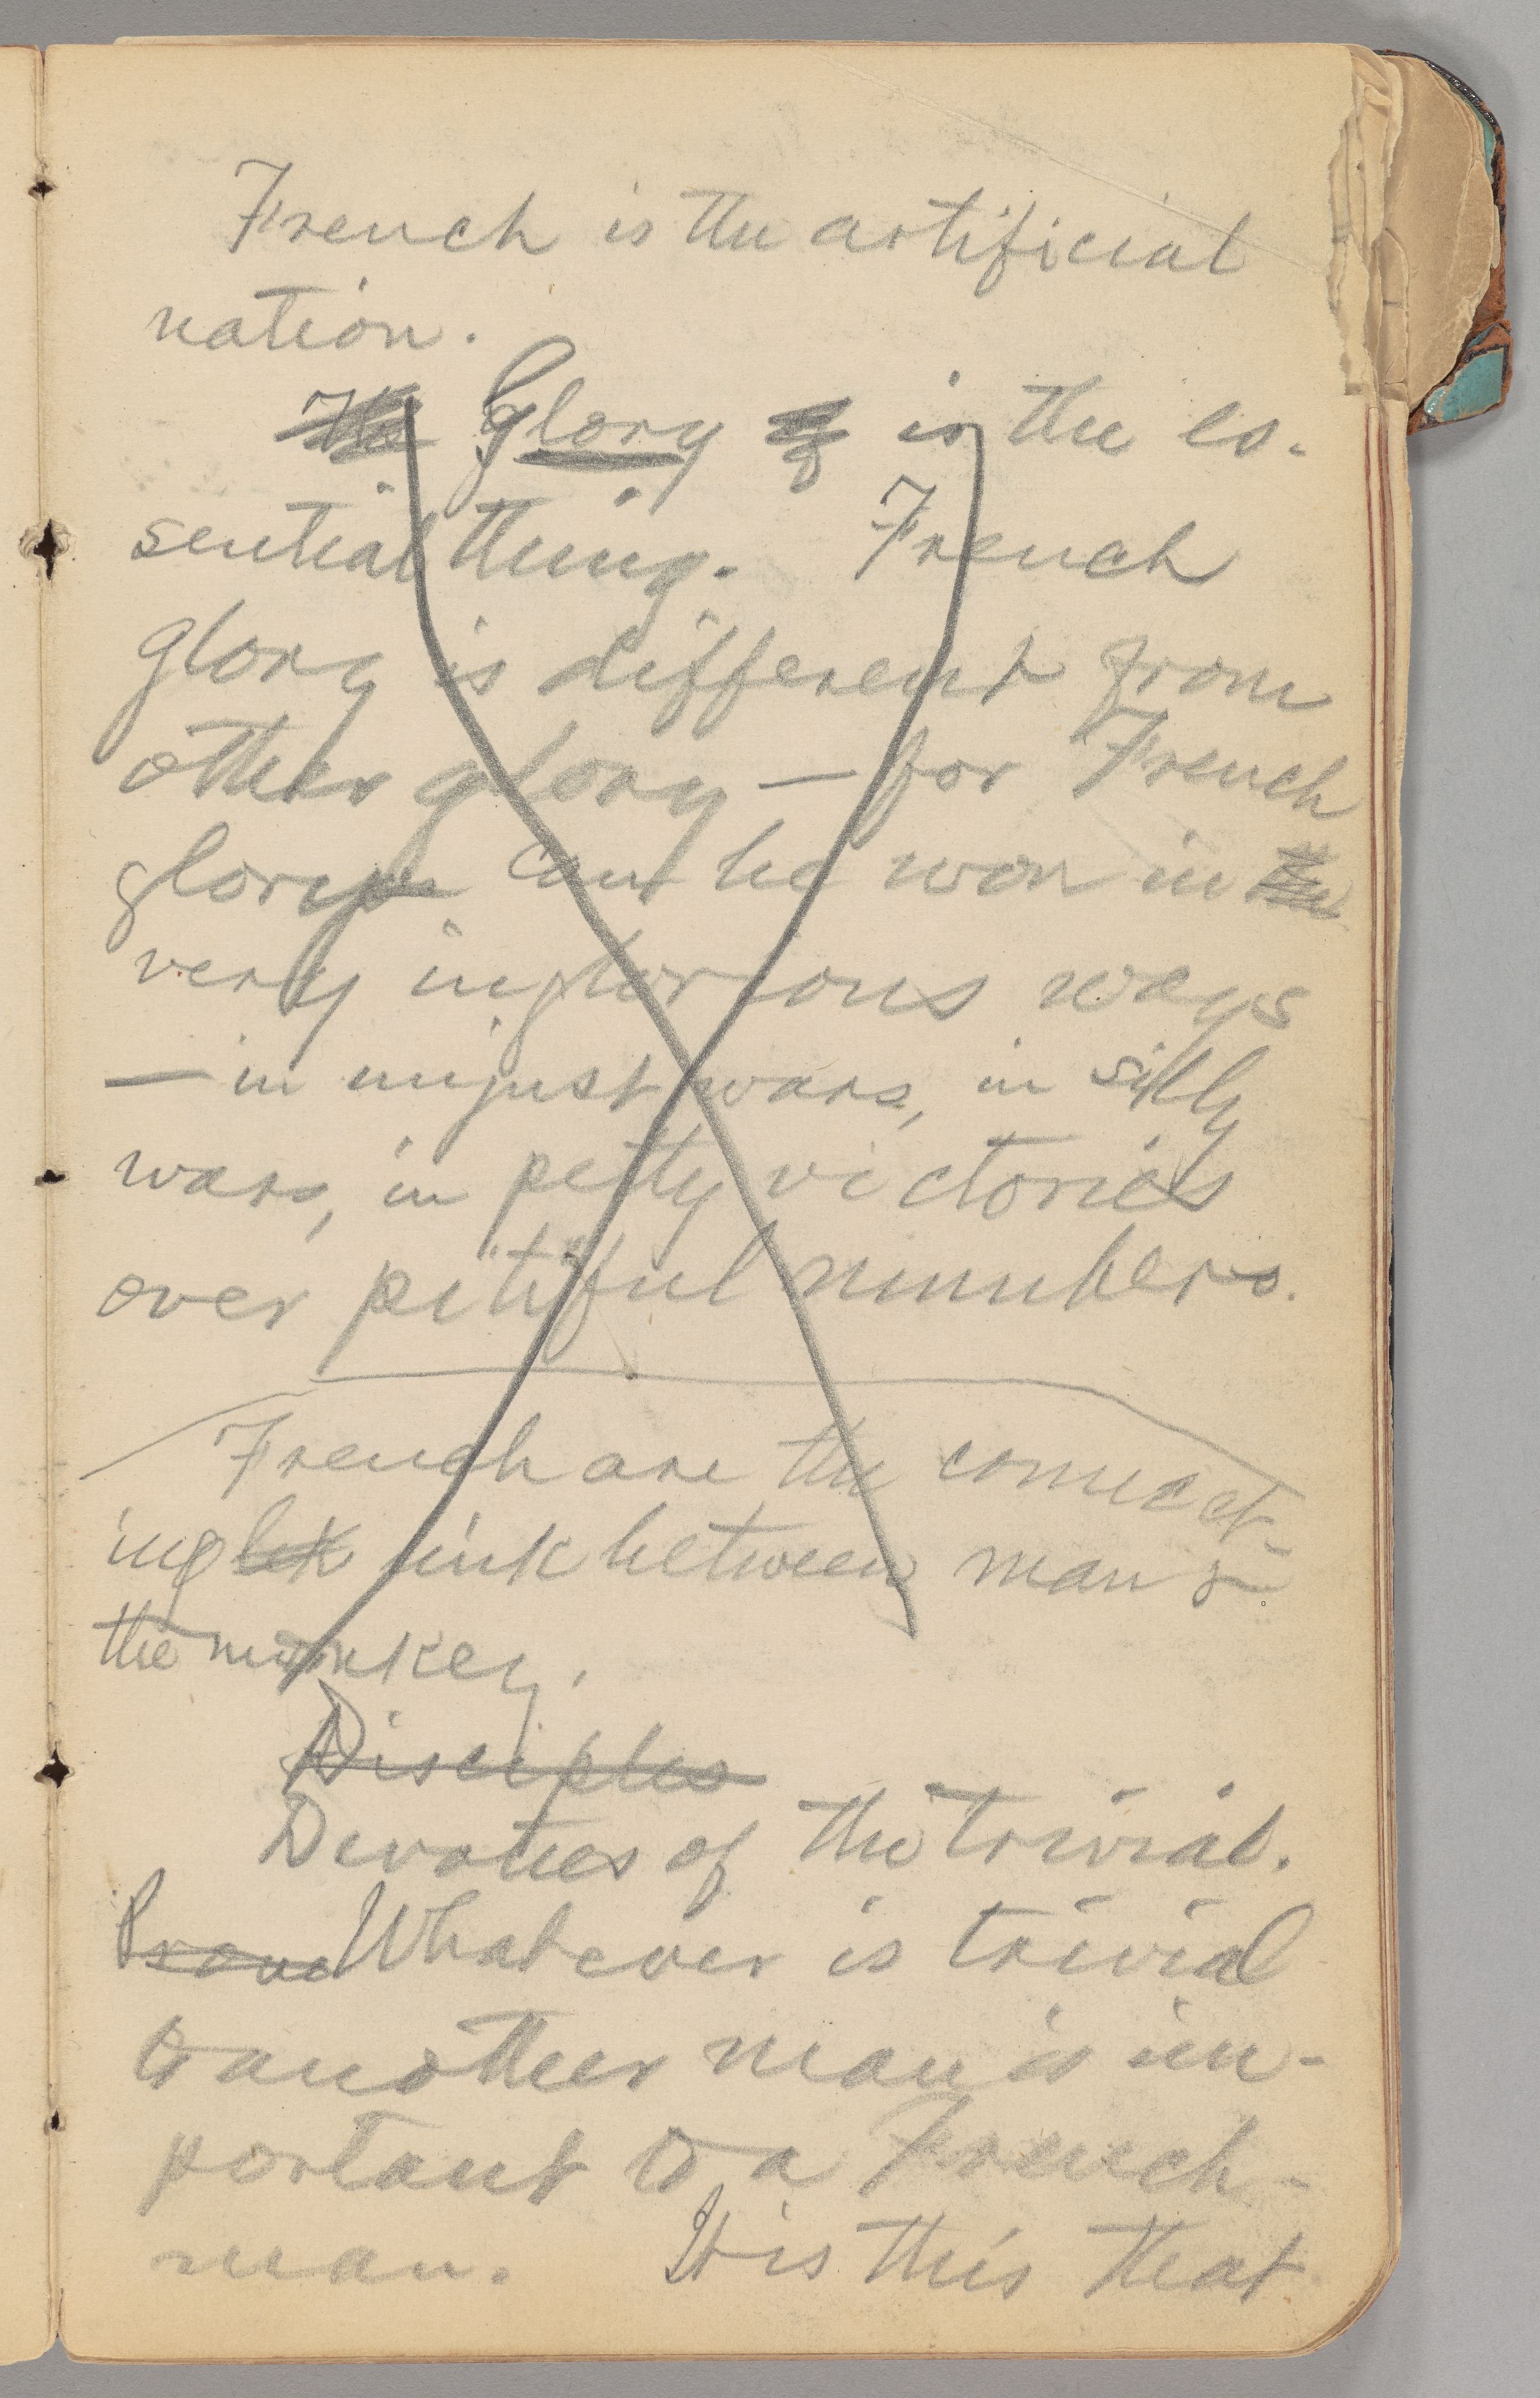 French is the artificial
nation.
The Glory of is the es-
sential thing. French
glory is different from
other glory — for French
glory can be won in the
very inglorious ways
— in unjust wars, in silly
wars, in petty victories
over pitiful numbers.
French are the connect-
ing link between man &
the monkey.
Disciples
Devotees of the trivial.
Prove Whatever is trivial
to another man is im-
portant to a French-
man. It is this that